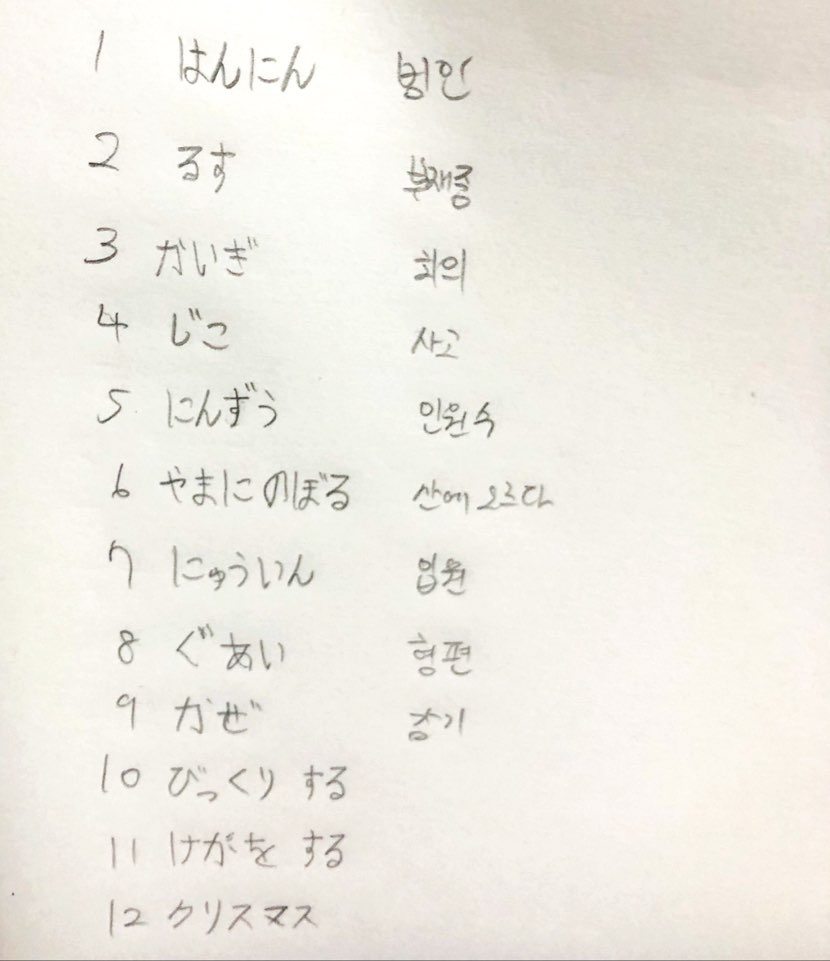 1 はんにん 범인
2 るす 부재중
3 かいぎ 회의
4 じこ 사고
5 にんずう 인원수
6 やまにのぼる 산에 오르다
7 にゅういん 입원
8 ぐあい 형편
9 かぜ 감기
10 びっくり する
11 けがを する
12 クリスマス